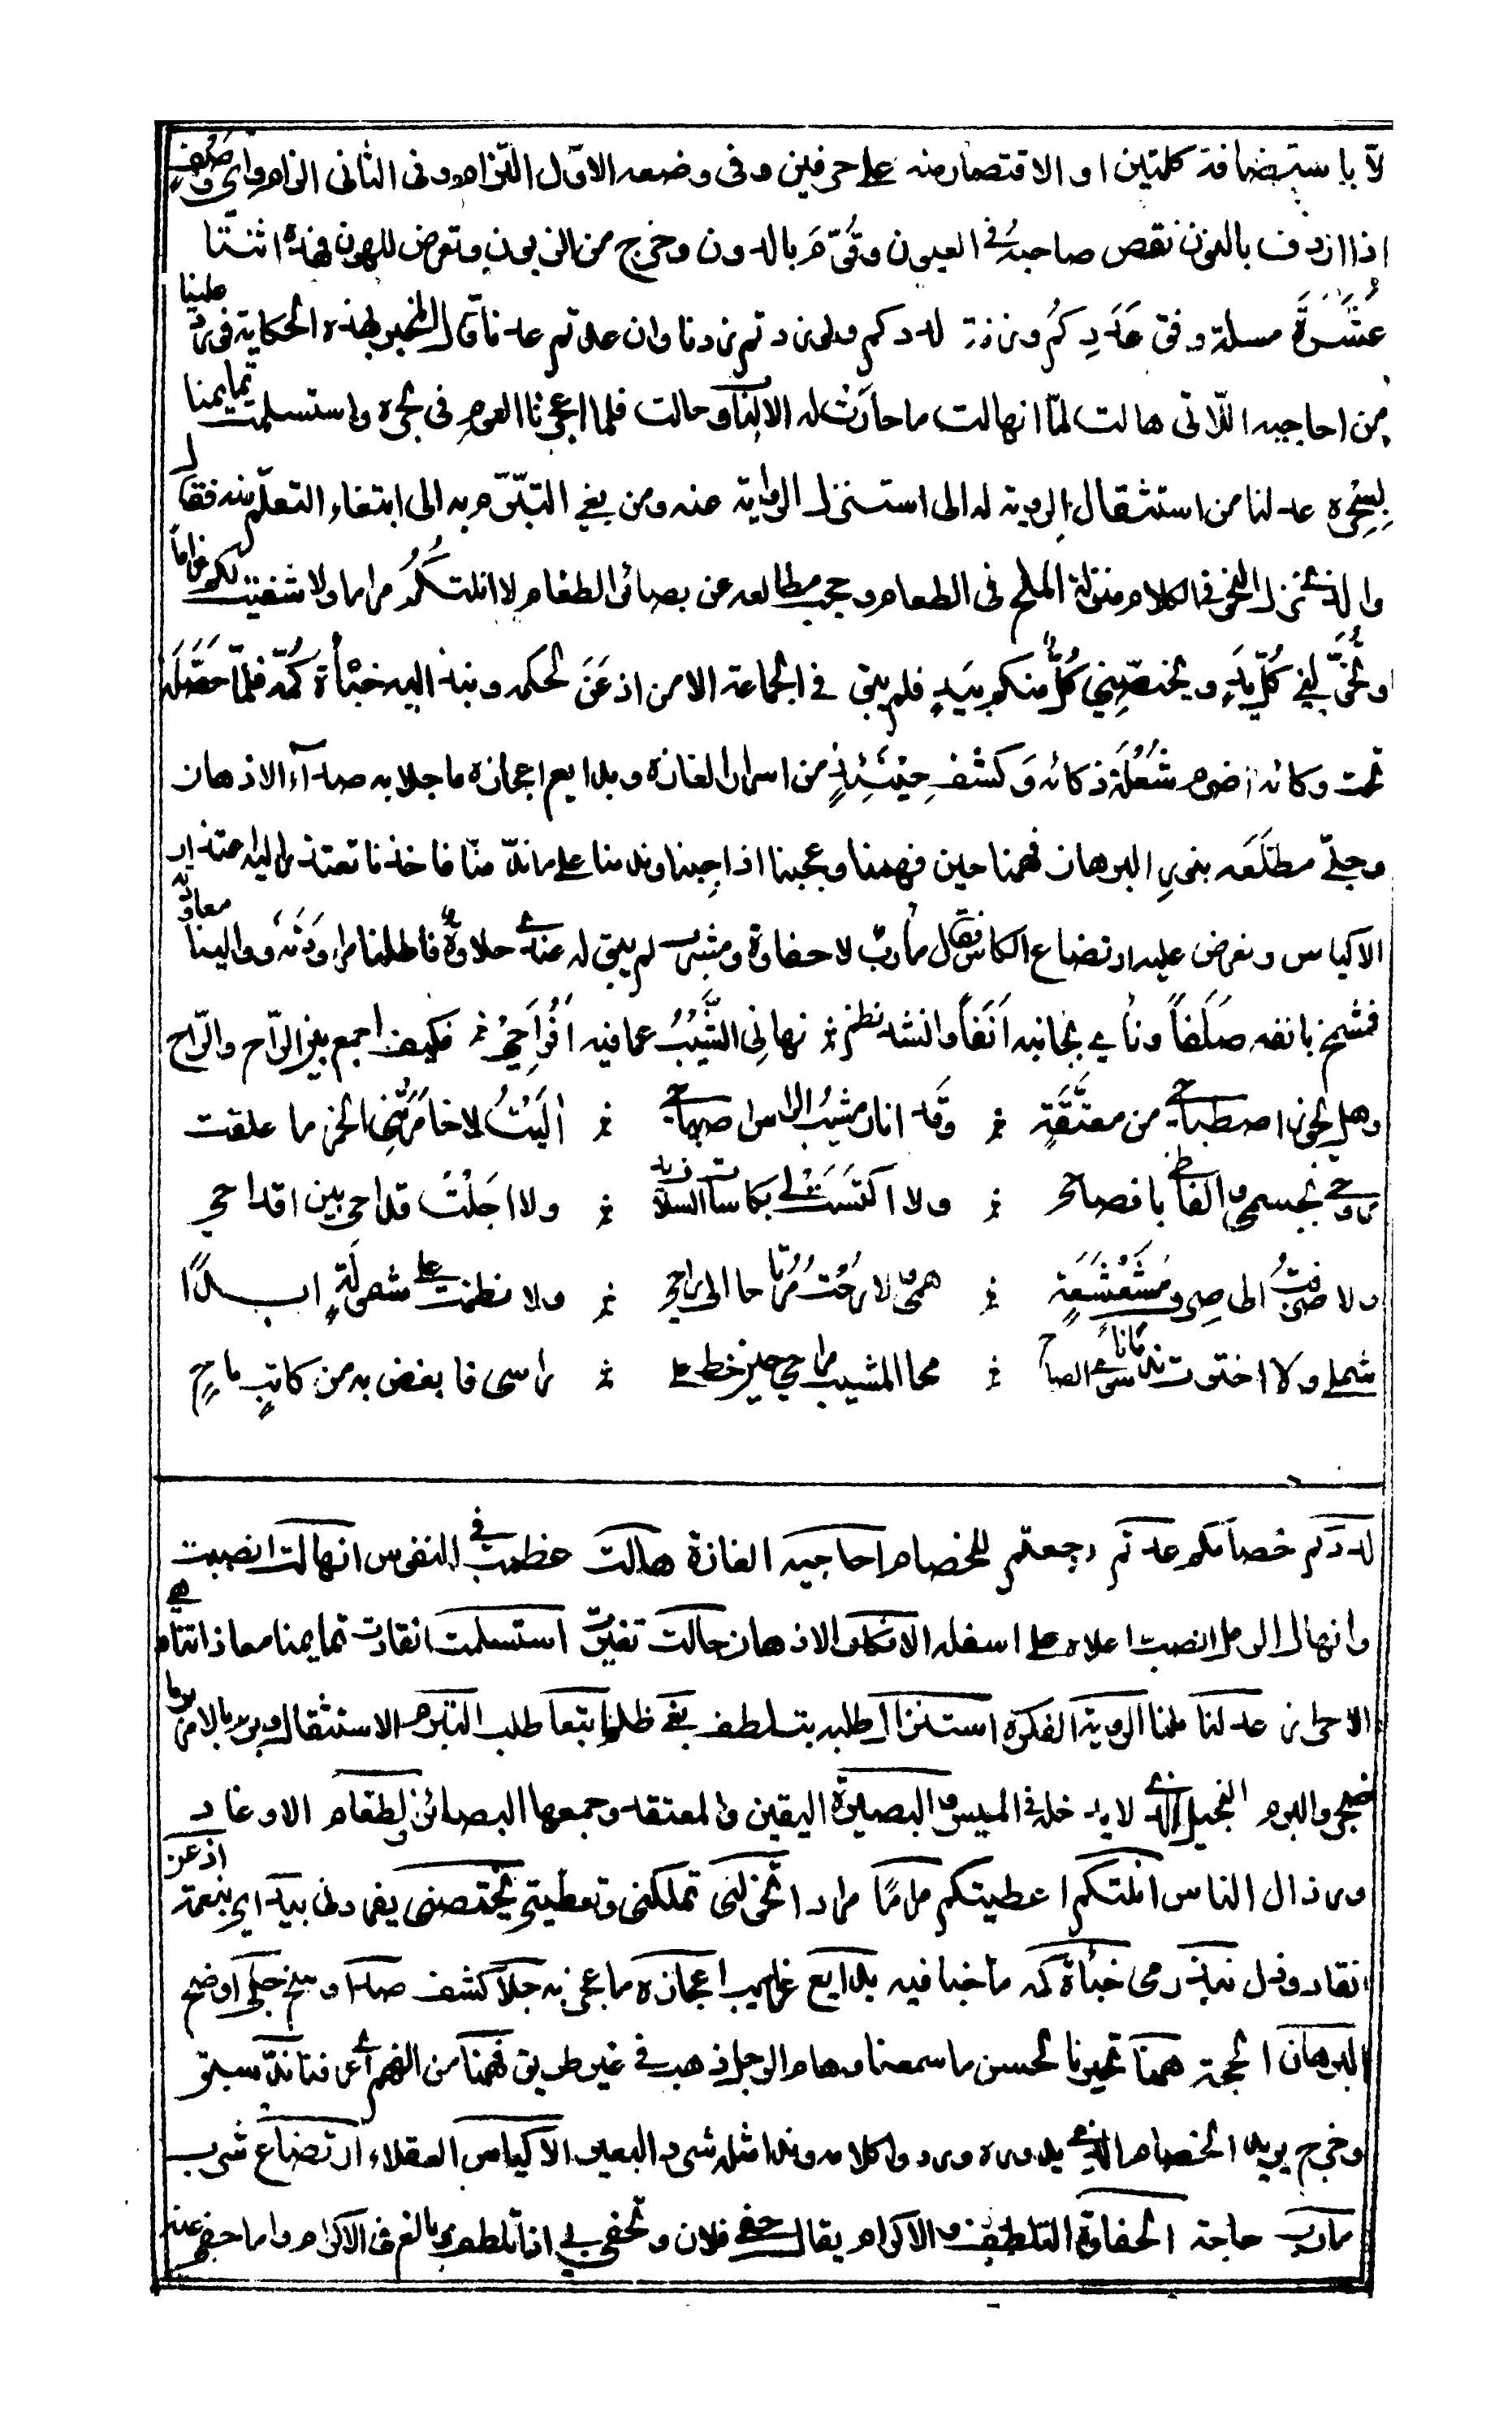 لّا باستضافة كلمتين او الاقتصار منه على حرفين وفى وضعه الاوّل التزام وفى الثانى الزام واىّ وصف
اذا اردف بالنون نقص صاحبه فى العيون وقُوّمَ بالدون وخرج من الزبون وتعرض للهون فهذه اثنتا
عَشْرَةَ مسئلة وفق عَدَدِكُم وزنة لددكم ولو زدتم زدنا وان عدتم عدنا قال المخبر بهذه الحكاية فورد علينا
من احاجيه اللّاتى هالت لمّا انهالت ما حارت له الافكار وحالت فلما اعجزنا العوم فى بحره واستسلمت تمايمنا
لِسِحْرِه عدلنا من استثقال الروية له الى استنزال الرواية عنه ومن بغى التبرّم به الى ابتغاء التعلّم منه فقال
والذى نزل النحو فى الكلام منزلة الملح فى الطعام وحجب مطالعه عن بصائر الطغام لا انلتكُم مراما ولا شفيت لكم غراما
او تُخَوِّلنى كلُّ يدٍ ويختصّنِى كُلٌّ منكم بيَدٍ فلم يبق فى الجماعة الا من اذعَنَ لحكمه ونبذ اليه خبْأة كمّه فلمّا حصّلَه
تحت وكائه اضرم شُعْلَة ذكائه وَكشف حِينَئِذٍ من اسرار الغازه وبدايع اعجازه ما جلا به صدآء الاذهان
وجلّى مطلَعَه بنورِ البرهان فهمنا حين فهمنا وعجبنا اذا اجبنا وندمنا على ما ندّ منّا فاخذنا نعتذر اليه اعتذار
الاكياس ونعرض عليه ارتضاع الكاس فقال مأربٌ لا حفاوة ومشرب لم يبق له عندى حلاوةٌ فاطلنا مراودَتَه ووالينا معاودته
فشمخ بانفه صَلَفاً ونأى بجانبه اَنَفاً وانشد نظم نهانى الشَّيْبُ عما فيه اَفْرَاحِى فكيف اجمع بين الرّاح والرّاح
وهل يجوز اصطباحى من معتَّقَةٍ وقد انار مشيبُ الراس اصباحى اٰلَيْتُ لا خامَرَتْنِى الخمر ما علقت
روحى بجسمى والفاظى بافصاحى ولا اكتسَتْ لى بكاسات السلاف يد ولا اجَلْتُ قداحى بين اقداحى
ولا صرفتُ الى صِرفٍ مُشَعْشَعَةٍ همى ولا رحْتُ مُرتاحا الى راحى ولا نظمت على مشمولَةٍ ابدًا
شملى ولا اخترت ندمانا سوى الصاح محا المشيب مراحى حين خط على راسى فابغض به من كاتبٍ ماحٍ
لددكم خصامكم عدتم رجعتم للخصام احاجيه الغازه هالت عظمت فى النفوس انهالت انصبت
وانهال الرمل انصب اعلاه على اسفله الافكار الاذهان حالت تغيرت استسلمت انقادت تمايمنا معاذاتنا هى
الاحراز عدلنا ملنا الروية الفكرة استنزال طلبه بتلطف بغى ظلم ابتغا طلب التبرم الاستثقال وبرم بالامر برما
ضجر والبرم البخيل الذى لا يدخل فى الميسر البصيرة اليقين والمعتقد وجمعها البصائر الطغام الاوغاد
ورذال الناس انلتكم اعطيتكم مرامًا مراد اتخولنى تملكنى وتعطينى يختصنى يفردنى بيد اى بنعمة اذعن
انقاد وذل نبذ رمى خبأة كمه ما خبا فيه بدايع غرايب اعجازه ما عجز به جلا كشف صدا وسخ جلى اوضح
البرهان الحجة همنا تحيرنا لحسن ما سمعنا وهام الرجل ذهب فى غير طريق فهمنا من الفهم اى عرفنا ندّ سبق
وخرج يريد الخصام الذى بدوره وردوا كلامه وندا مثله شرد البعير الاكياس العقلاء ارتضاع شرب
مارب حاجة الحفاوة التلطف والاكرام يقال حفى فلان وتحفى بى اذا تلطف بى وبالغ فى الاكرام واما حفى عنه